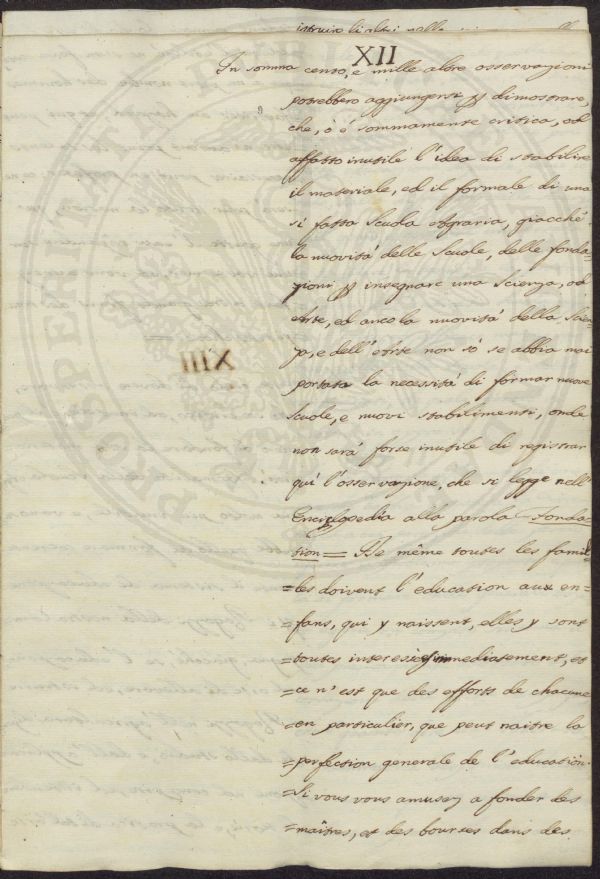 XII
In somma cento, e mille altre osservazioni
potrebbero aggiungersi p dimostrare,
che, ò é sommamente critica, od
affatto inutile l'idea di stabilire
il materiale, ed il formale di una
si fatta Scuola Agraria, giacché
la nuovità delle Scuole, delle fonda=
zioni p insegnare una Scienza, od
Arte, ed anco la nuovità della Scien=
za, e dell'Arte non sò se abbia mai
portata la necessità di formar nuove
Scuole, e nuovi stabilimenti, onde
non sarà forse inutile di registrar
quì l'osservazione, che si legge nell'
Enciclopedia alla parola Fonda=
tion = De même toutes les famil=
=les doivent l'education aux en=
=fans, qui y naissent, elles y sont
=toutes interessées immediatement, et
=ce n'est que des efforts de chacune
=en particulier, que peut naitre la
=perfection generale de l'education.
=Si vous vous amusez a fonder des
=maîtres, et des bourses dans des
XIII
PROSPERITAT